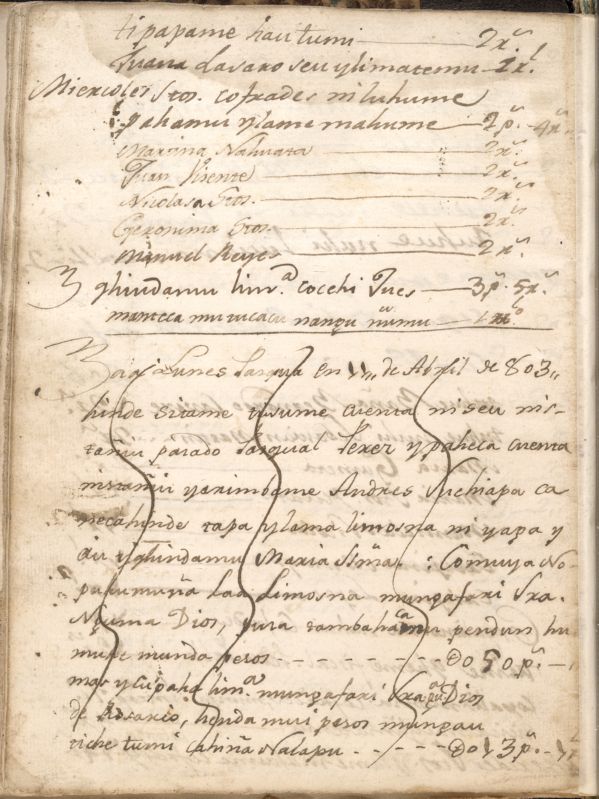 tipapame hautumi — 2rˢ
Juana Lasaro seu ylimatemu — 1rˡ
Miercoles Stos. cofrades niluhume
pahamu ylame mahume — 2pˢ 4rˢ
Martina Nahuata — 2rˢ
Juan Visente — 2rˢ
Nicolasa Stos. — 2rˢ
Geronima Stos. — 2rˢ
Manuel Reyes — 2rˢ
ghindamu limᵃ cocchi Jues — 3pˢ 5rˢ
manteca munangu numu —
Lunes Pasqua en 11 de Abril de 803
hinde sitame tusume cuenta niseu nis-
tamu pasado Pasqual Perer y paheca cuenta
nistañui yarimbame Andres Suchiapa ca
necahinde tapa ylama limosna ni yapa y
ghindamu Maria SSma. : Comuya No-
pakumuña Laa Limosna mungafari Sra.
Nguma Dios, tambaha pendun hu
mune munda pesos - - - - - - 50pˢ
mas y cupaha limᵃ mungafari Sra Dios
de Rosario, henda mui pesos mungau
riche tumi cahiña Nalapu - - - - 13pˢ